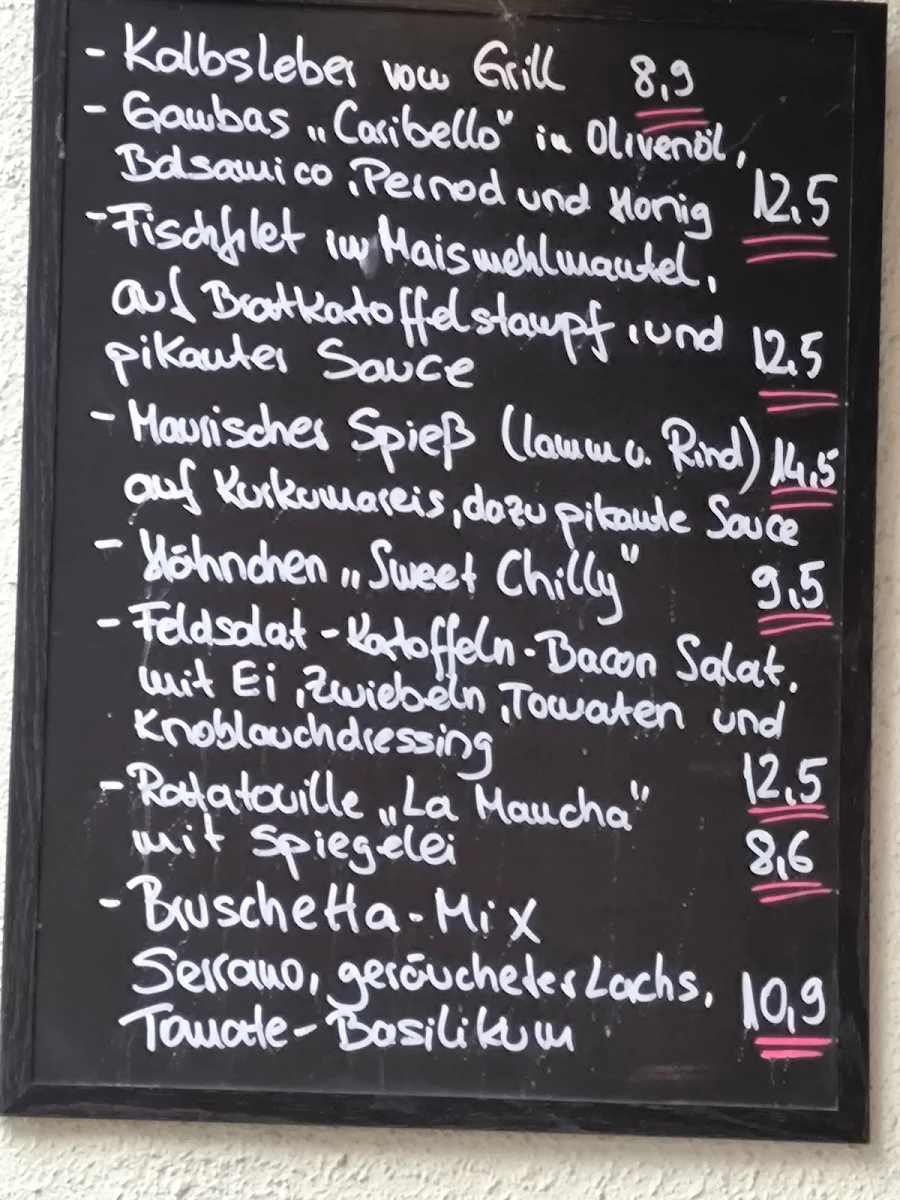 - Kalbsleber vom Grill 8,9
- Gambas „Caribello" in Olivenöl,
Balsamico, Pernod und Honig 12,5
- Fischfilet im Maismehlmantel,
auf Bratkartoffelstampf, und
pikanter Sauce 12,5
- Maurischer Spieß (Lamm u. Rind) 14,5
auf Kurkumareis, dazu pikante Sauce
- Hähnchen „Sweet Chilly" 9,5
- Feldsalat - Kartoffeln - Bacon Salat,
mit Ei, Zwiebeln, Tomaten und
Knoblauchdressing 12,5
- Ratatouille „La Mancha"
mit Spiegelei 8,6
- Bruschetta - Mix
Serrano, geräucherter Lachs,
Tomate - Basilikum 10,9